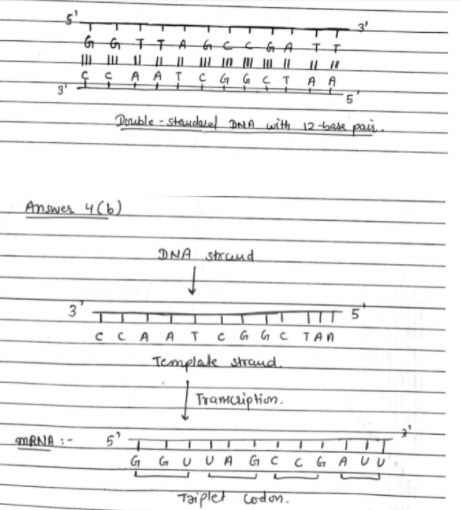 5' 3'
G G T T A G C C G A T T
C C A A T C G G C T A A
3' 5'
Double-standed DNA with 12-base pair.
Answer 4(b)
DNA strand
3' 5'
C C A A T C G G C T A A
Template strand.
Transcription.
mRNA :- 5' 3'
G G U U A G C C G A U U
Triplet codon.